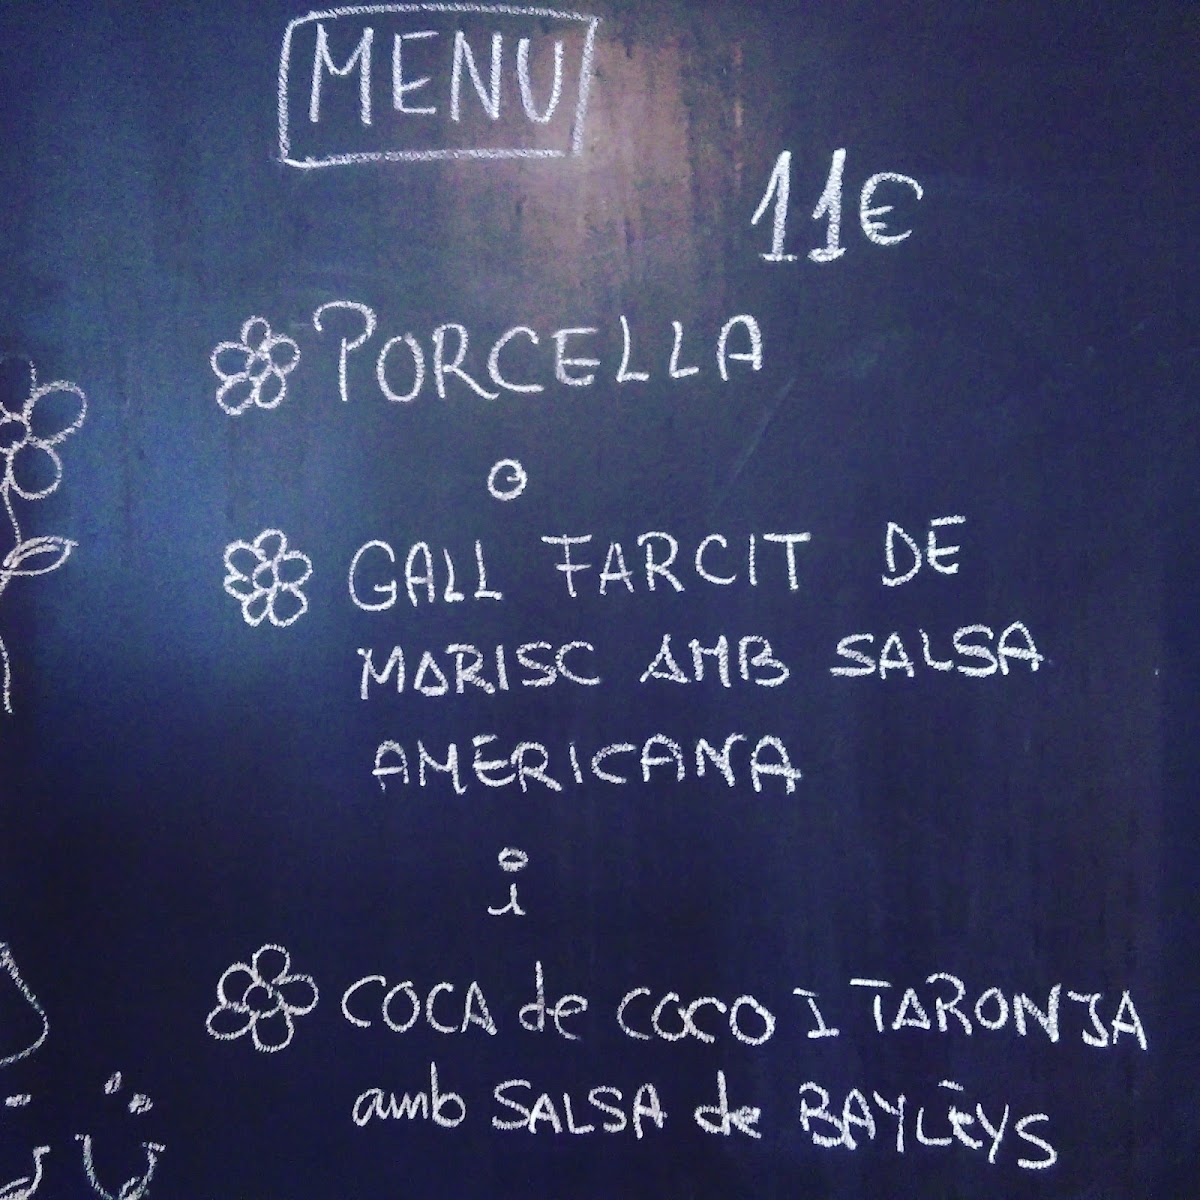 MENU
11€
PORCELLA
o
GALL FARCIT DE
MARISC AMB SALSA
AMERICANA
i
COCA de COCO I TARONJA
amb SALSA de BAYLEYS